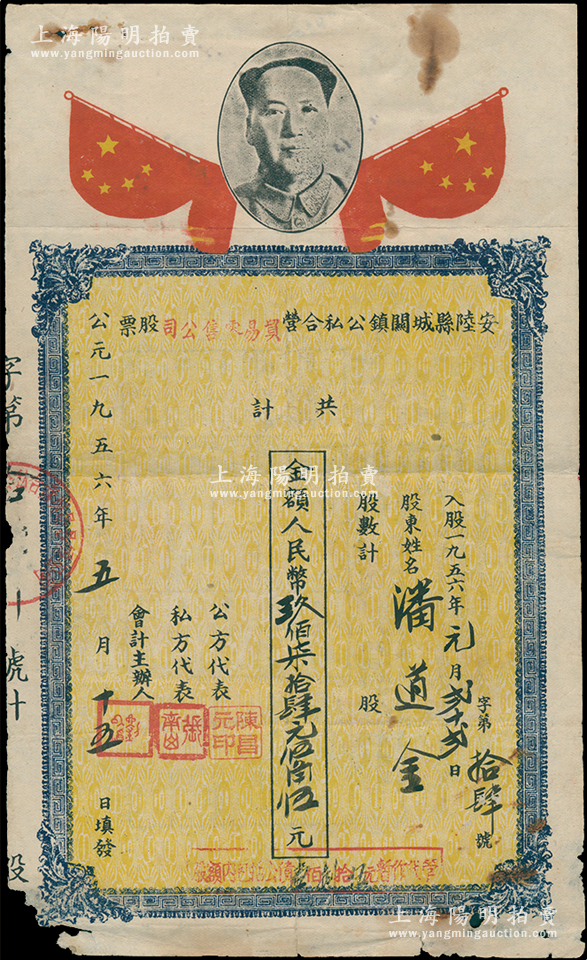 上海陽明拍賣
www.yangmingauction.com
安陸縣城關鎮公私合營貿易零售公司股票
共計
入股一九五六年元月 日
字第拾肆號
股東姓名 潘道全
股數計 股
金額人民幣玖佰柒拾肆元伍角伍 元
公方代表
陳昌元印
私方代表
會計主辦人
公元一九五六年五月十五日填發
字第
號
股
上海陽明拍賣
www.yangmingauction.com
上海陽明拍賣
www.yangmingauction.com